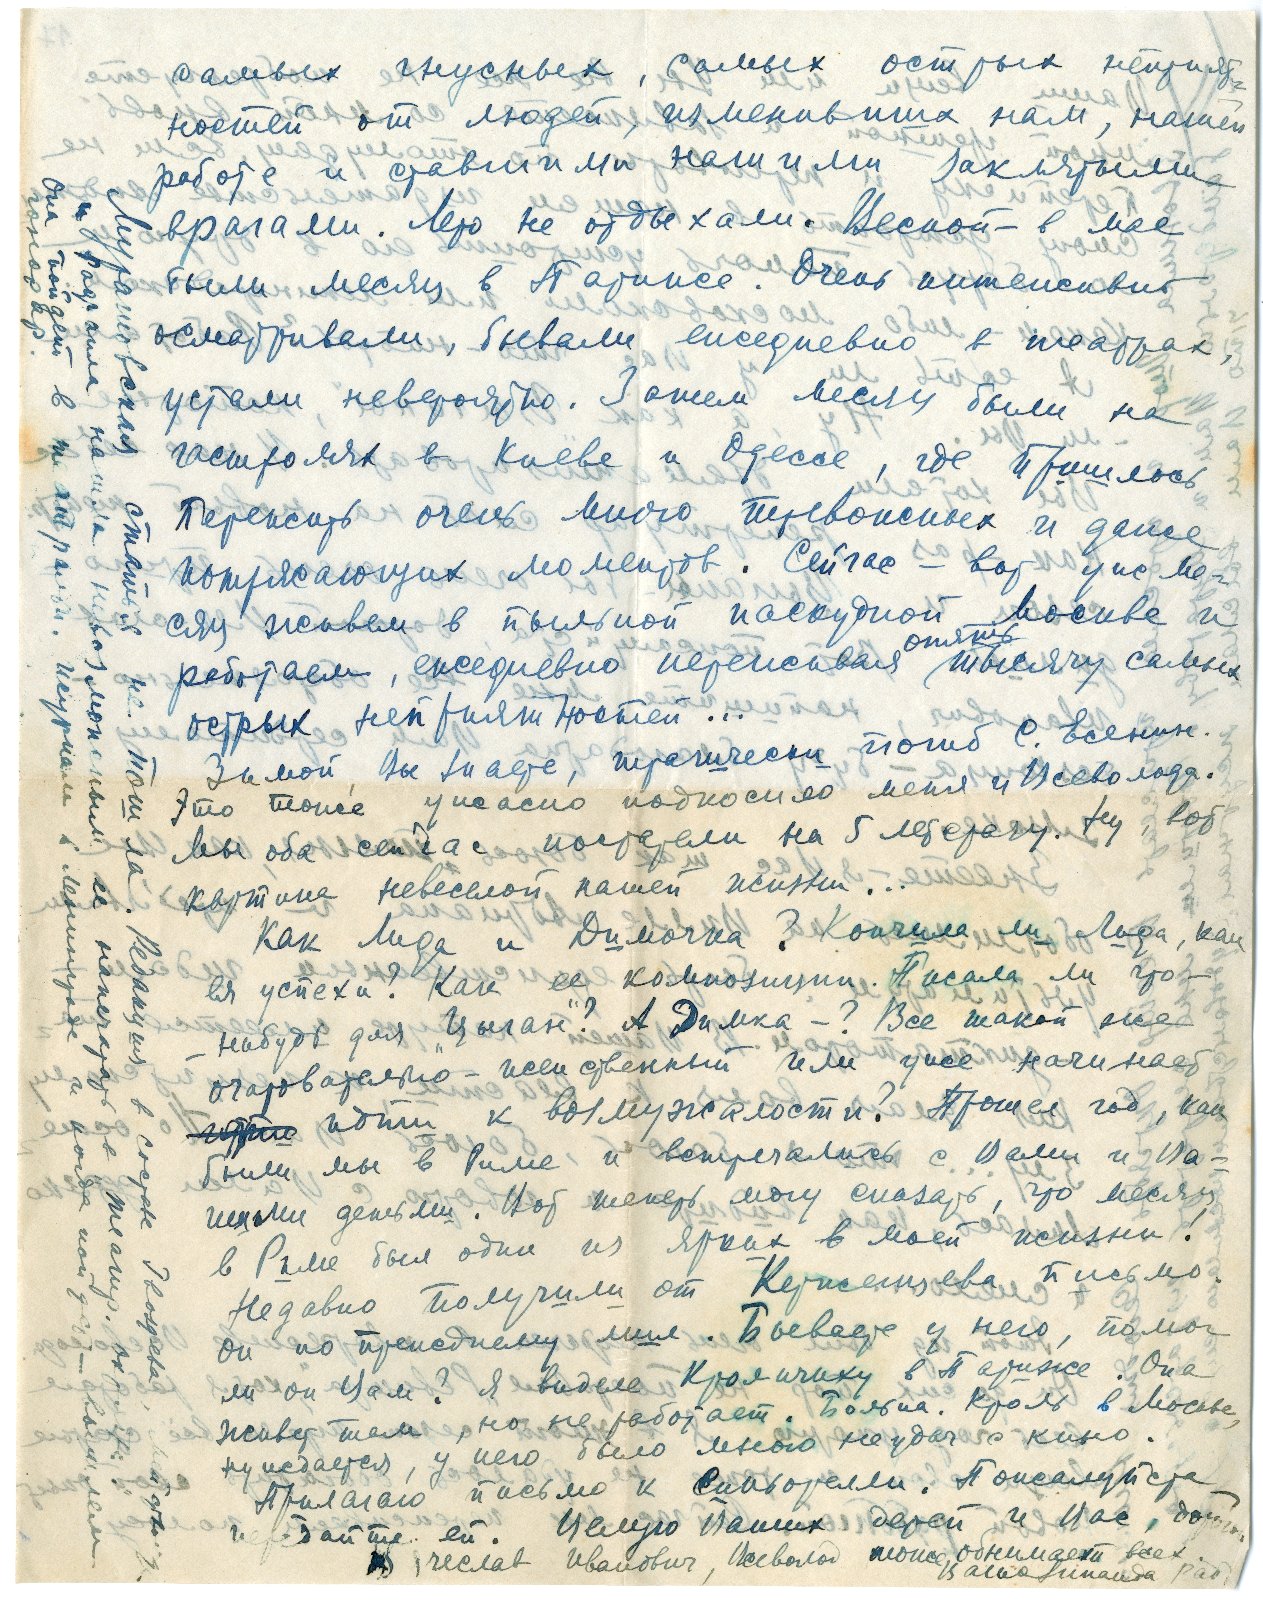 самых гнусных, самых острых неприят-
ностей от людей, изменивших нам, нашей
работе и ставшими нашими заклятыми
врагами. Лето не отдыхали. Весной – в мае
были месяц в Париже. Очень интенсивно
осматривали, бывали ежедневно в театрах,
устали невероятно. Затем месяц были на
гастролях в Киеве и Одессе, где пришлось
пережить очень много тревожных и даже
потрясающих моментов. Сейчас – вот уже ме-
сяц живем в пыльной паскудной Москве и
работаем, ежедневно переживая опять тысячу самых
острых неприятностей...
Зимой, Вы знаете, трагически погиб С. Есенин.
Это тоже ужасно подкосило меня и Всеволода.
Мы оба сейчас постарели на 5 лет сразу. Ну, вот
картина невеселой нашей жизни...
Как Лида и Димочка? Кончила ли Лида, как
ея успехи? Как ее композиции. Писала ли что-
-нибудь для "Цыган"? А Димка –? Все такой же
очаровательно-женственный или уже начинает
идти к возмужалости? Прошел год, как
были мы в Риме и встречались с Вами и Ва-
шими детьми. Вот теперь могу сказать, что месяц
в Риме был один из ярких в моей жизни!
Недавно получили от Керженцева письмо.
Он по прежнему мил. Бываете у него, помог
ли он Вам? Я видела Кроличку в Париже. Она
живет там, но не работает. Больна. Кроль в Москве,
нуждается, у него было много неудач с кино.
Прилагаю письмо к Синьорелли. Пожалуйста
передайте ей. Целую Ваших детей и Вас, дорогой
Вячеслав Иванович, Всеволод тоже обнимает всех.
Ваша Зинаида Райх
Мурановская статья не пошла. Редакция в составе Гвоздева,
и Радлова нашла невозможным ее напечатать в "Театр. октябре".
Она пойдет в театральн. журнале в Ленинграде и когда пойдет – вышлем
гонорар.